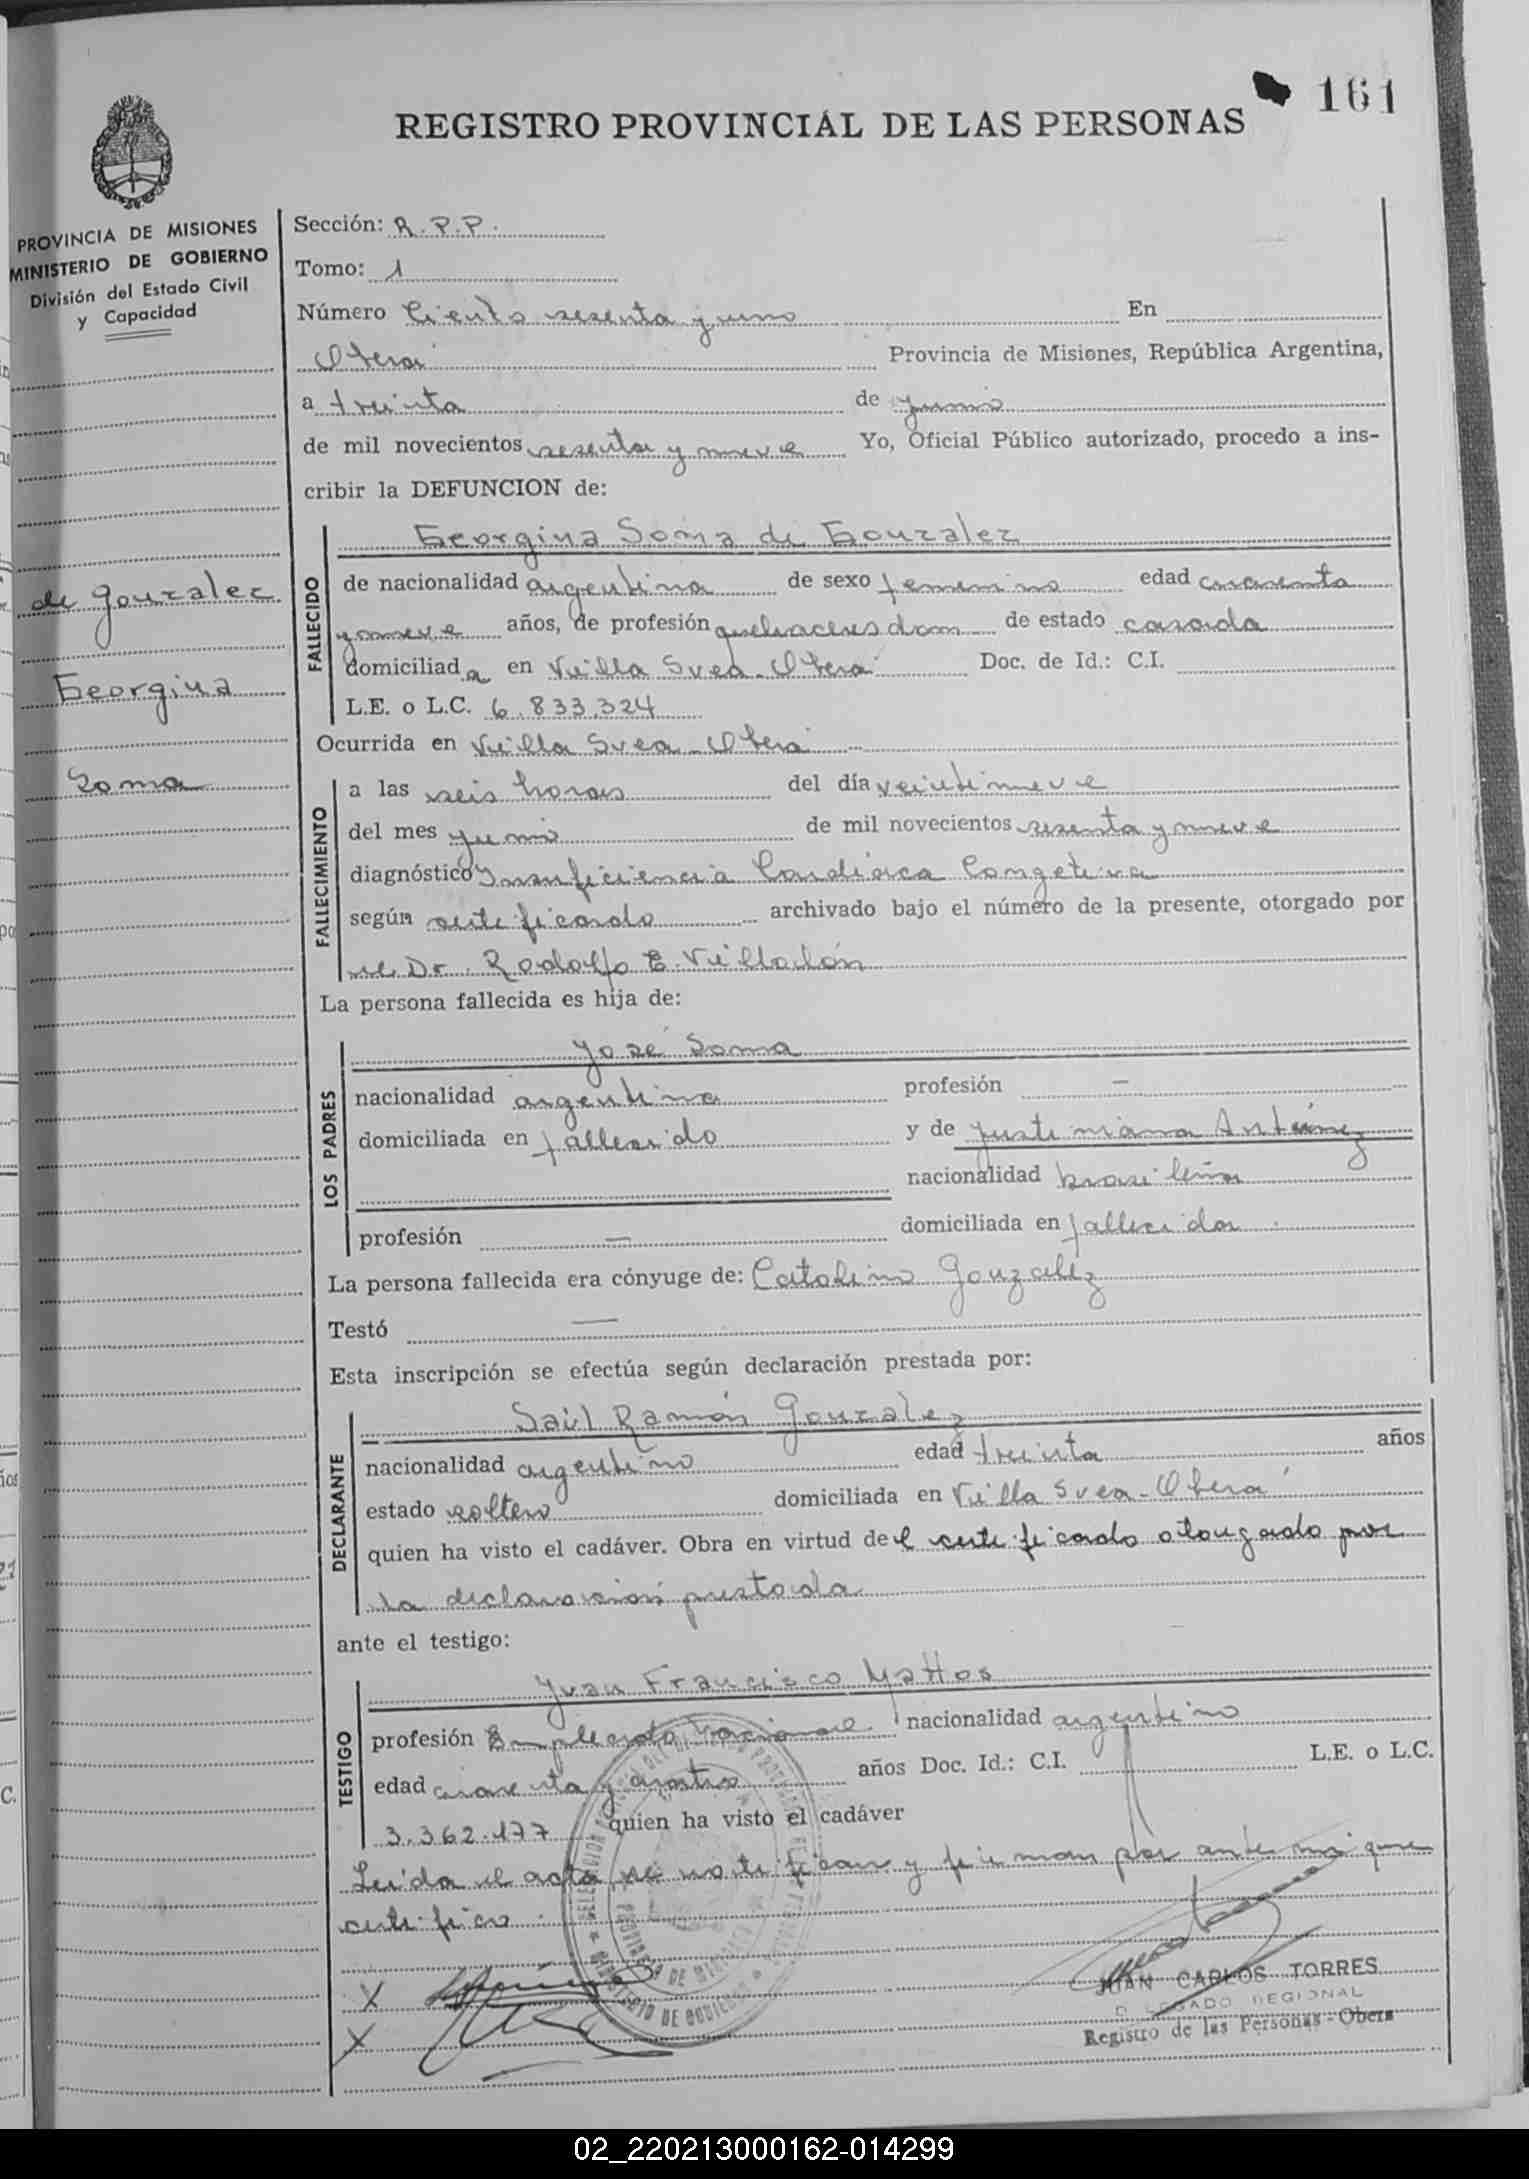 161
REGISTRO PROVINCIAL DE LAS PERSONAS
PROVINCIA DE MISIONES
MINISTERIO DE GOBIERNO
División del Estado Civil
y Capacidad
de Gonzalez
Georgina
Soma
Sección: R.P.P.
Tomo: 1
Número Ciento sesenta y uno En
Oberá Provincia de Misiones, República Argentina,
a treinta de junio
de mil novecientos sesenta y nueve Yo, Oficial Público autorizado, procedo a ins-
cribir la DEFUNCION de:
FALLECIDO
Georgina Soma de Gonzalez
de nacionalidad argentina de sexo femenino edad cuarenta
y nueve años, de profesión quehaceres dom de estado casada
domiciliada en Villa Svea - Oberá Doc. de Id.: C.I.
L.E. o L.C. 6.833.324
Ocurrida en Villa Svea - Oberá
FALLECIMIENTO
a las seis horas del día veintinueve
del mes junio de mil novecientos sesenta y nueve
diagnóstico Insuficiencia Cardiaca Congetiva
según certificado archivado bajo el número de la presente, otorgado por
el Dr. Rodolfo E. Villalón
La persona fallecida es hija de:
LOS PADRES
José Soma
nacionalidad argentina profesión —
domiciliada en fallecido y de Justiniana Antúnez
nacionalidad brasileña
profesión — domiciliada en fallecida
La persona fallecida era cónyuge de: Catalino Gonzalez
Testó —
Esta inscripción se efectúa según declaración prestada por:
DECLARANTE
Saúl Ramón Gonzalez
nacionalidad argentino edad treinta años
estado soltero domiciliada en Villa Svea - Oberá
quien ha visto el cadáver. Obra en virtud del certificado otorgado por
la declaración prestada
ante el testigo:
TESTIGO
Juan Francisco Mattos
profesión Empleado Nacional nacionalidad argentino
edad cuarenta y cuatro años Doc. Id.: C.I. L.E. o L.C.
3.362.177 quien ha visto el cadáver
Leida el acta, se notifican y firman por ante mi que
certifico.
X
X
JUAN CARLOS TORRES
DELEGADO REGIONAL
Registro de las Personas - Obera
PROVINCIA DE MISIONES
MINISTERIO DE GOBIERNO
02_220213000162-014299